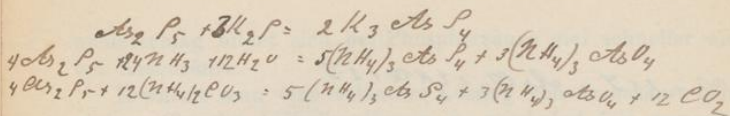 As2 S5 + 3K2S = 2 K3 As S4
4 As2 S5 + 24NH3 + 12H2O = 5(NH4)3 As S4 + 3(NH4)3 AsO4
4 As2 S5 + 12(NH4)2CO3 = 5(NH4)3 As S4 + 3(NH4)3 AsO4 + 12 CO2